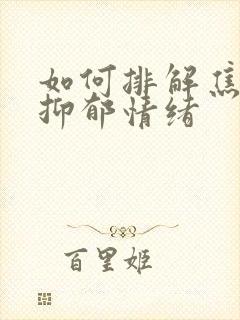 如何排解焦
抑郁情绪
百里姬